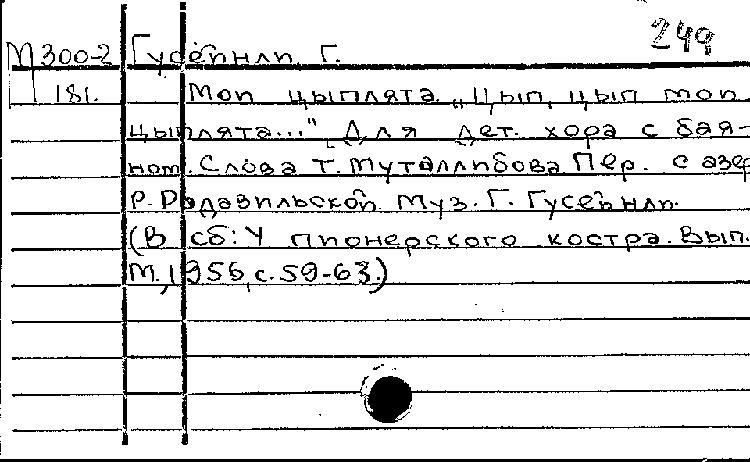 249
М300-2 Гусейнли Г.
181. Мои цыплята. „Цып, цып мои
цыплята..." Для дет. хора с бая-
ном. Слова Т. Муталлибова. Пер. с азер
Р. Рдазвильской. Муз. Г. Гусейнли.
(В сб: У пионерского костра. Вып.
М., 1956, с. 59-63.)